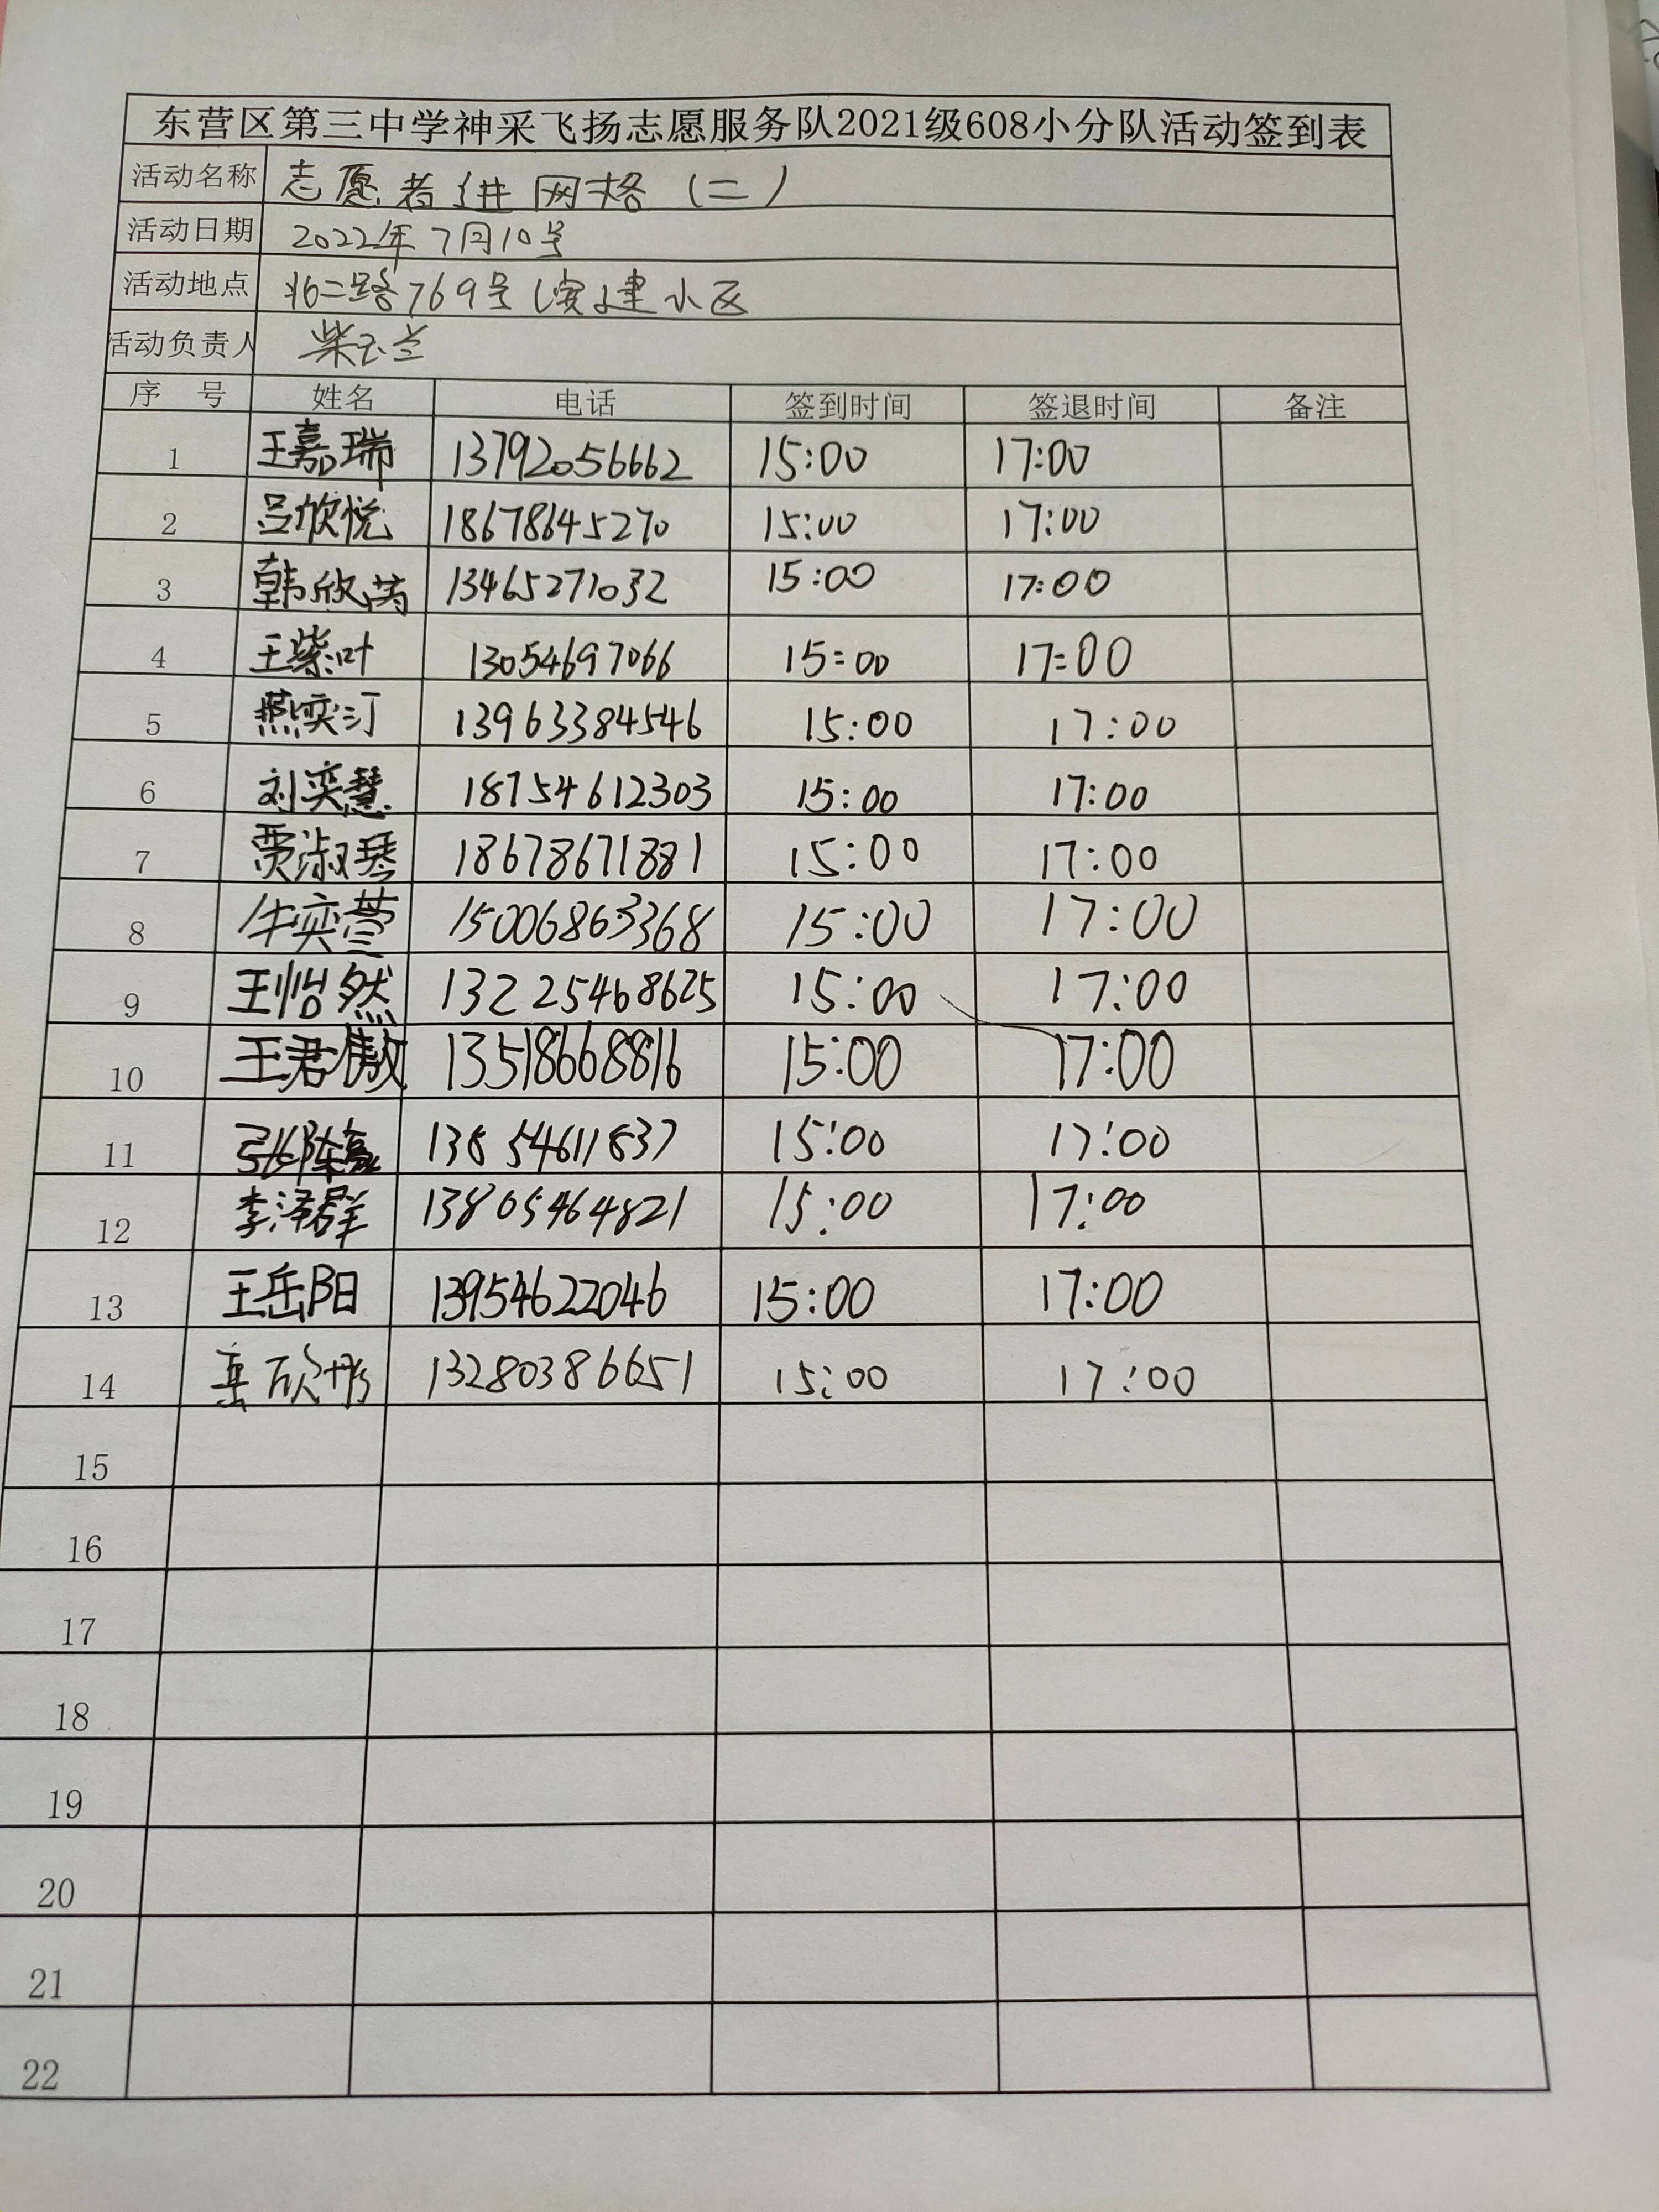 东营区第三中学神采飞扬志愿服务队2021级608小分队活动签到表
活动名称 志愿者进网格(二)
活动日期 2022年7月10号
活动地点 北二路769号滨建小区
活动负责人 柴玉兰
序 号 姓名 电话 签到时间 签退时间 备注
1 王嘉瑞 13792056662 15:00 17:00
2 吕欣悦 18678645270 15:00 17:00
3 韩欣芮 13465271032 15:00 17:00
4 王紫叶 13054697066 15:00 17:00
5 燕奕汀 13963384546 15:00 17:00
6 刘奕慧 18754612303 15:00 17:00
7 贾淑琴 18678671881 15:00 17:00
8 牛奕萱 15006863368 15:00 17:00
9 王怡然 13225468625 15:00 17:00
10 王君傲 13518668816 15:00 17:00
11 13854611837 15:00 17:00
12 李泽群 13805464821 15:00 17:00
13 王岳阳 13954622046 15:00 17:00
14 岳欣彤 13280386651 15:00 17:00
15
16
17
18
19
20
21
22